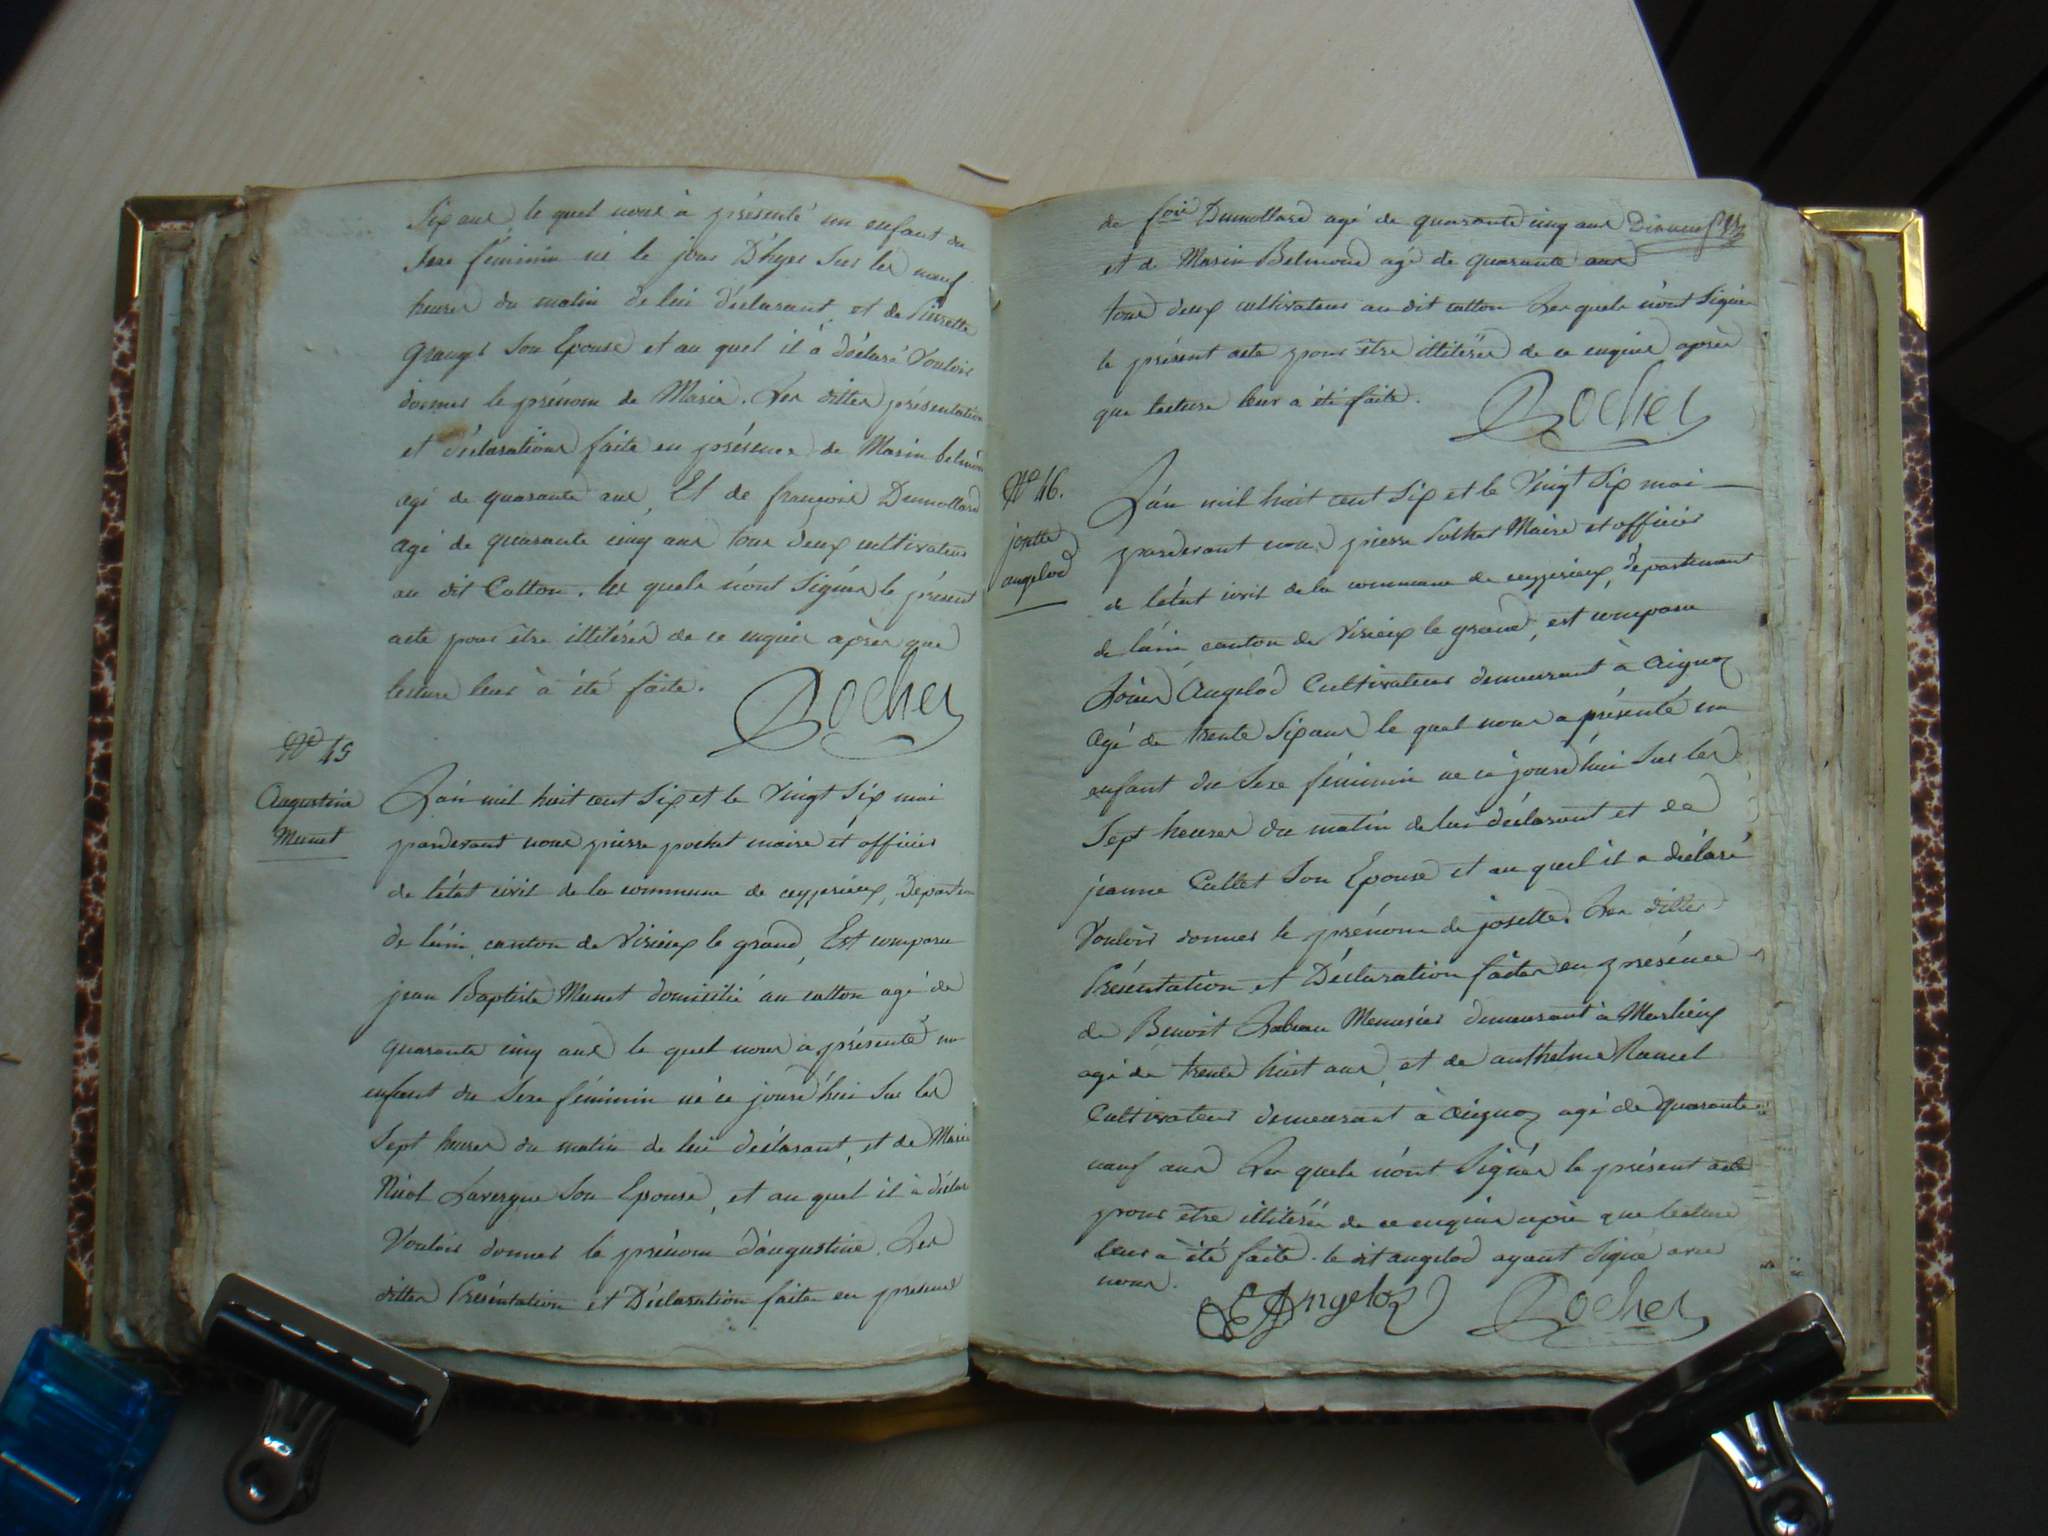 Six ans, le quel nous à présenté un enfant du
Sexe féminin né le jour D'hyer Sur les neuf
heures du matin de lui déclarant, et de Pierrette
Grange Son Epouse et au quel il à déclaré Vouloir
donner le prénom de Marie. Les dittes présentation
et déclarations faite en présence de Marin belmon
agé de quarante ans, Et de françois Dumollard
agé de quarante cinq ans tous deux cultivateurs
au dit Catton. les quels n'ont Signés le présent
acte pour être illitérés de ce enquis après que
lecture leur à été faite.
Pochet
No 45
Augustine
Munet
L'an mil huit cent Six et le Vingt Six mai
pardevant nous pierre pochet maire et officier
de l'état civil de la commune de ceyzerieux, Départem
de l'ain, canton de Virieux le grand, Est comparu
jean Baptiste Munet domicilié au catton agé de
quarante cinq ans le quel nous a présenté un
enfant du Sexe féminin né ce jourd'hui Sur les
Sept heures du matin de lui déclarant, et de Marie
Nicol Lavergne Son Epouse, et au quel il à déclaré
Vouloir donner le prénom d'augustine. Les
dittes Présentation et Déclaration faites en présence
de fois Dumollard agé de quarante cinq ans
et de Marin Belmond agé de quarante ans
tous deux cultivateurs au dit catton Les quels n'ont Signés
le présent acte pour être illitérés de ce enquis après
que lecture leur a été faite.
Pochet
No 46.
josette
angelod
L'an mil huit cent Six et le Vingt Six mai
pardevant nous pierre Pochet Maire et officier
de l'état civil de la commune de ceyzerieux, département
de l'ain canton de Virieux le grand, est comparu
Louis Angelod Cultivateur demeurant à Aignoz
Agé de trente Six ans le quel nous a présenté un
enfant du Sexe féminin né ce jourd'hui Sur les
Sept heures du matin de lui déclarant et de
jeanne Cullet Son Epouse et au quel il a déclaré
Vouloir donner le prénom de josette. Les dittes
Présentation et Déclaration faites en présence
de Benoit Menusier demeurant à Marlieux
agé de trente huit ans, et de anthelme Ramel
Cultivateur demeurant à Aignoz agé de quarante
neuf ans Les quels n'ont Signés le présent acte
pour être illitérés de ce enquis après que lecture
leur a été faite. le dit angelod ayant Signé avec
nous.
L Angeloz Pochet